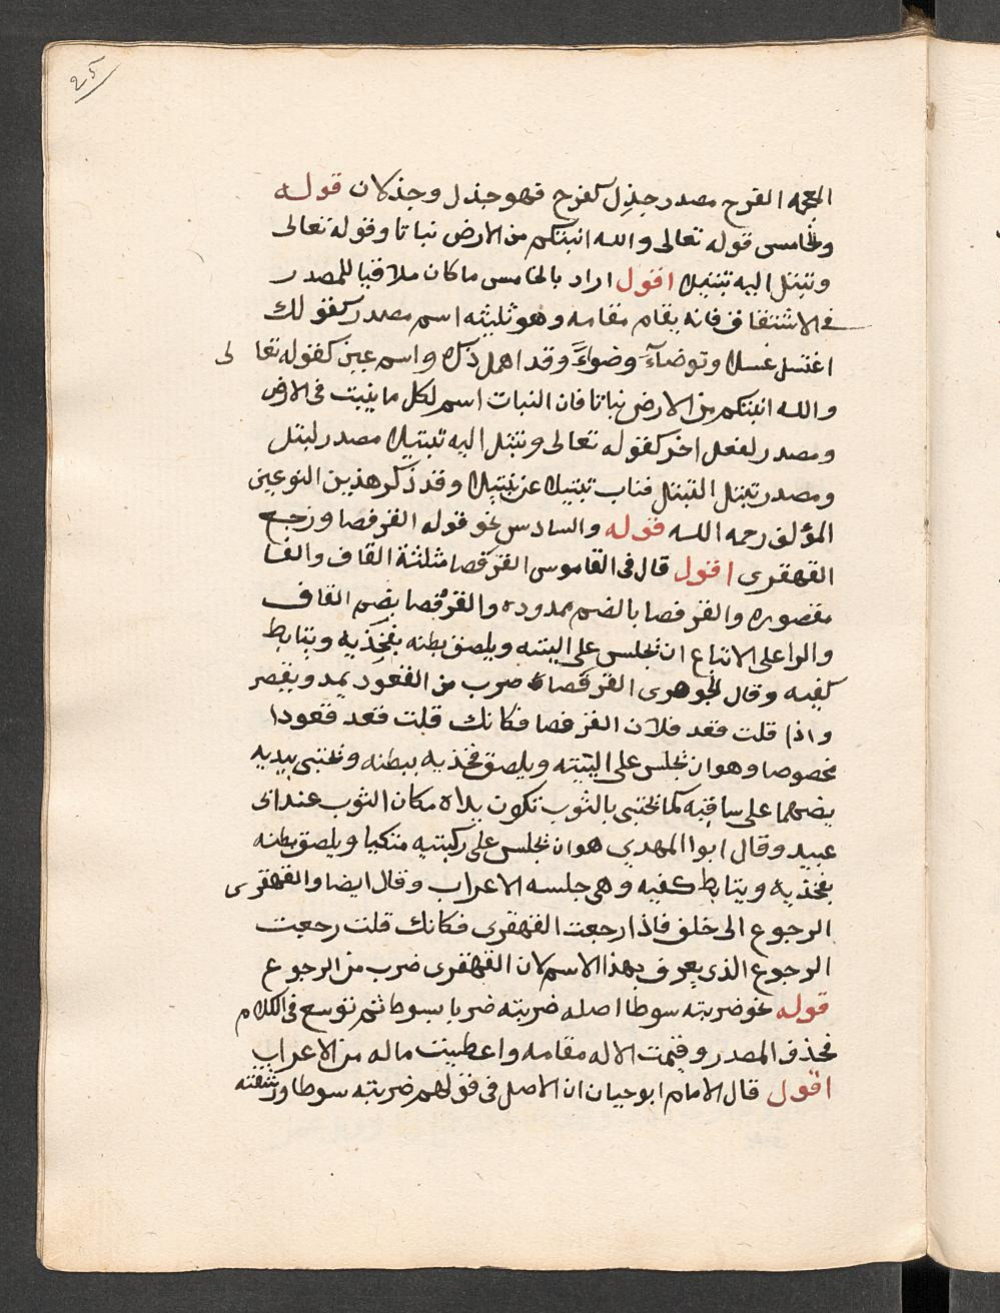 25
المعجمه الفرح مصدر جذِل كفرح فهو جذل وجذلان قوله
والخامس قوله تعالى والله انبتكم من الارض نباتا وقوله تعالى
وتبتل اليه تبتيلا اقول اراد بالخامس ما كان ملاقيا للمصدر
في الاشتقاق فانه يقام مقامه وهو ثلثه اسم مصدر كقولك
اغتسل غسلا وتوضاءَ وضواءً وقد اهمل ذكره واسم عين كقوله تعالى
والله انبتكم من الارض نباتا فان النبات اسم لكل ما ينبت في الارض
ومصدر لفعل اخر كقوله تعالى وتبتل اليه تبتيلا مصدر لبتل
ومصدر تبتل التبتل فناب تبتيلا عن تبتلا وقد ذكر هذين النوعين
المؤلف رحمه الله قوله والسادس نحو قوله القرفصا ورجع
القهقرى اقول قال في القاموس القرفصا مثلثة القاف والفا
مقصوره والقرفصا بالضم ممدوده والقرُفصا بضم القاف
والرا على الاتباع ان يجلس على اليتيه ويلصق بطنه بفخذيه ويتابط
كفيه وقال الجوهرى القرفصاء ضرب من القعود يمد ويقصر
واذا قلت قعد فلان القرفصا فكانك قلت قعد قعودا
مخصوصا وهو ان يجلس على اليتيه ويلصق فخذيه ببطنه ويحتبى بيديه
يضعهما على ساقيه كما يحتبى بالثوب تكون يداه مكان الثوب عند ابى
عبيد وقال ابوا المهدي هو ان يجلس على ركبتيه متكيا ويلصق بطنه
بفخذيه ويتابط كفيه وهى جلسه الاعراب وقال ايضا والقهقرى
الرجوع الى خلف فاذا رجعت القهقرى فكانك قلت رجعت
الرجوع الذى يعرف بهذا الاسم لان القهقرى ضرب من الرجوع
قوله نحو ضربته سوطا اصله ضربته ضربا بسوط ثم توسع في الكلام
فحذف المصدر وقيمت الاله مقامه واعطيت ماله من الاعراب
اقول قال الامام ابو حيان ان الاصل في قولهم ضربته سوطا ورشقته